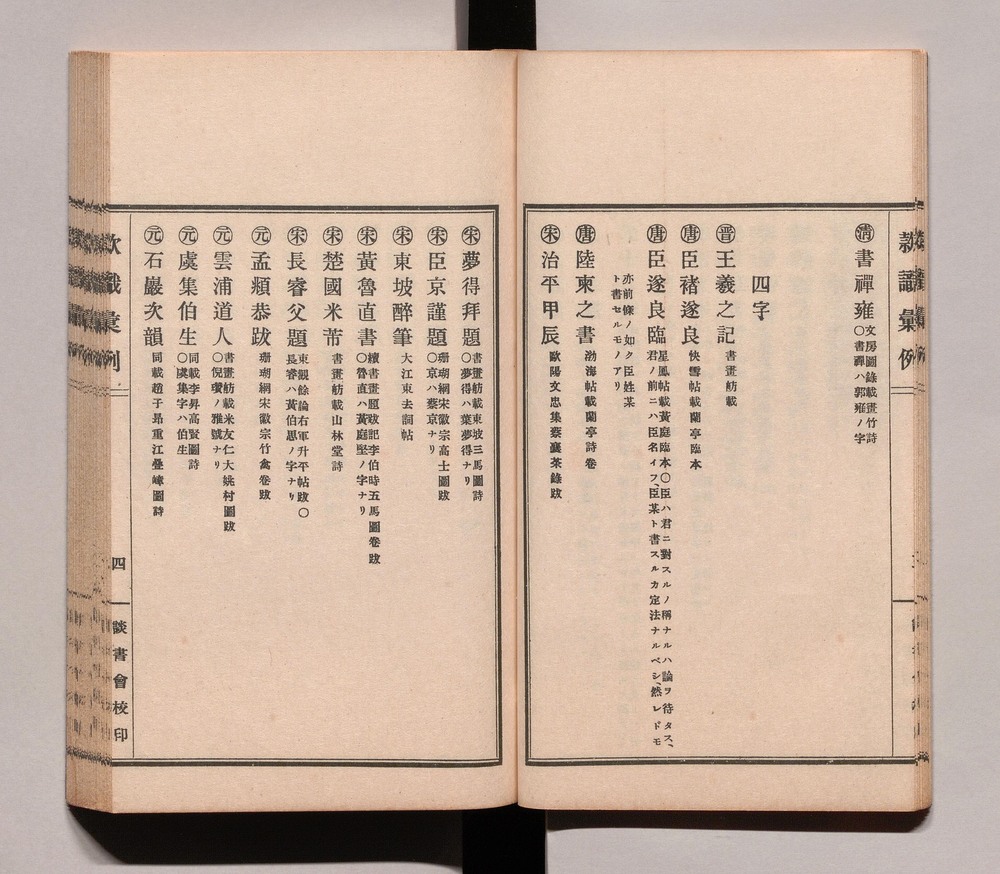 清 書禪雍 文房圖錄載畫竹詩
○書禪ハ郭雍ノ字
四字
晉 王羲之記 書畫舫載
唐 臣褚遂良 快雪帖載蘭亭臨本
唐 臣遂良臨 星鳳帖載黃庭臨本○臣ハ君ニ對スルノ稱ナルハ論ヲ待タス、
君ノ前ニハ臣名イフ、臣某ト書スルカ定法ナルベシ、然レドモ
亦前條ノ如ク臣姓某
ト書セルモノアリ
唐 陸柬之書 渤海帖載蘭亭詩卷
宋 治平甲辰 歐陽文忠集蔡襄茶錄跋
宋 夢得拜題 書畫舫載東坡三馬圖詩
○夢得ハ葉夢得ナリ
宋 臣京謹題 珊瑚網宋徽宗高士圖跋
○京ハ蔡京ナリ
宋 東坡醉筆 大江東去詞帖
宋 黃魯直書 續書畫題跋記李伯時五馬圖卷跋
○魯直ハ黃庭堅ノ字ナリ
宋 楚國米芾 書畫舫載山林堂詩
宋 長睿父題 東觀餘論右軍升平帖跋○
長睿ハ黃伯思ノ字ナリ
元 孟頫恭跋 珊瑚網宋徽宗竹禽卷跋
元 雲浦道人 書畫舫載米友仁大姚村圖跋
○倪瓚ノ雅號ナリ
元 虞集伯生 同載李昇高賢圖詩
○虞集字ハ伯生
元 石巖次韻 同載趙子昂重江疊嶂圖詩
四
談書會校印